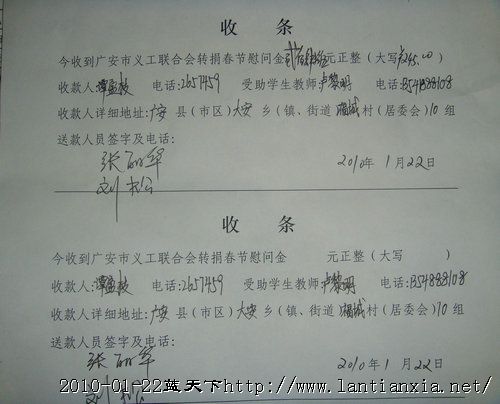 收 条
今收到广安市义工联合会转捐春节慰问金 元正整（大写 245.00）
收款人:谭孟枝 电话:2657459 受助学生教师:卢黎明 电话:
收款人详细地址:广安 县(市区)大安 乡(镇、街道 城 村(居委会)10 组
送款人员签字及电话:
张丽华
刘 松 2010年 1月22日
收 条
今收到广安市义工联合会转捐春节慰问金 元正整（大写 ）
收款人:谭孟枝 电话:2657459 受助学生教师:卢黎明 电话:
收款人详细地址:广安 县(市区)大安 乡(镇、街道 城 村(居委会)10 组
送款人员签字及电话:
张丽华 2010年 1月22日
刘 松
2010-01-22蓝天下http://www.lantianxia.net/